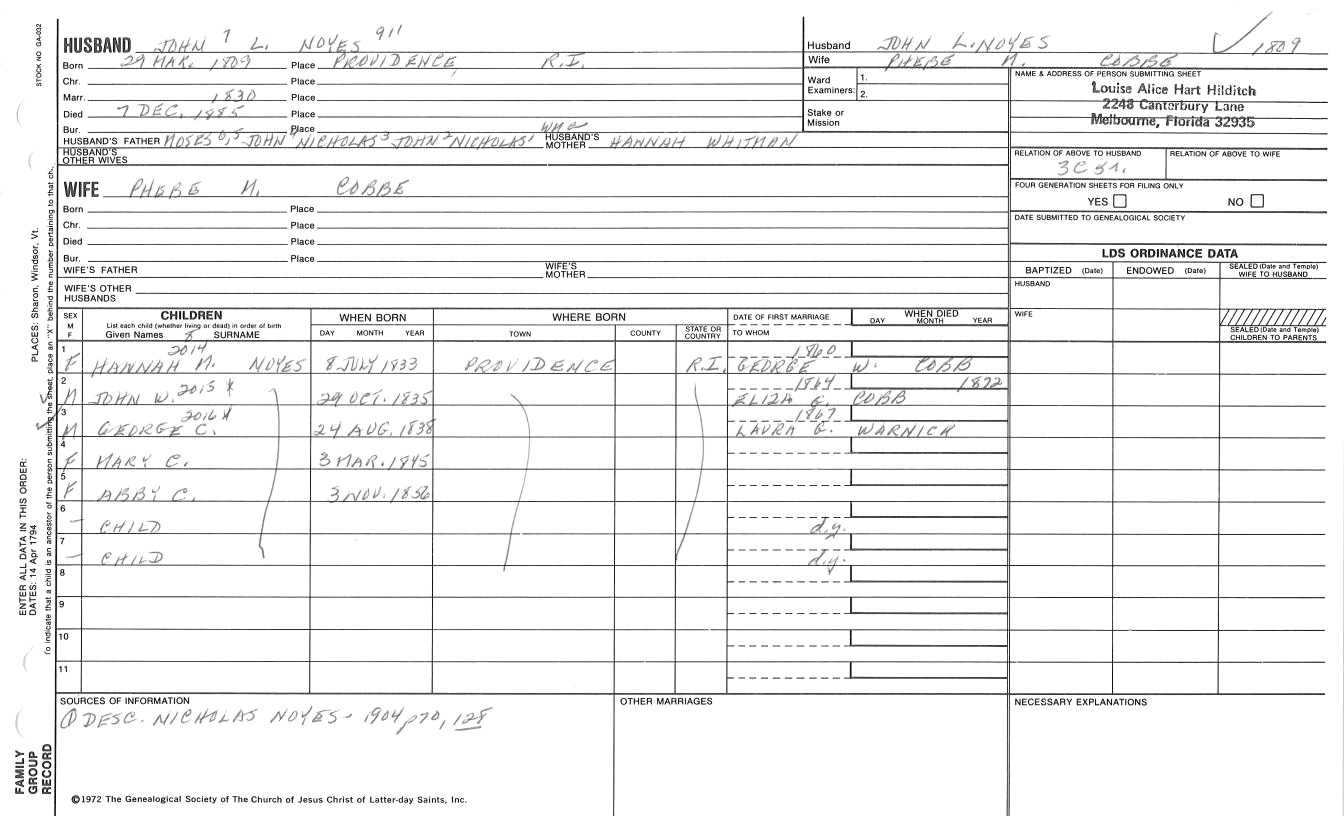 STOCK NO GA-032
HUSBAND JOHN 7 L. NOYES 911
Born 29 MAR. 1809 Place PROVIDENCE, R.I.
Chr. Place
Marr. 1830 Place
Died 7 DEC, 1885 Place
Bur. Place
HUSBAND'S FATHER MOSES 6,5 JOHN 4 NICHOLAS 3 JOHN 2 NICHOLAS 1 HUSBAND'S MOTHER HANNAH WHITMAN
HUSBAND'S OTHER WIVES
Husband JOHN L. NOYES 1809
Wife PHEBE M. COBBE
Ward Examiners: 1.
2.
Stake or Mission
NAME & ADDRESS OF PERSON SUBMITTING SHEET
Louise Alice Hart Hilditch
2248 Canterbury Lane
Melbourne, Florida 32935
RELATION OF ABOVE TO HUSBAND RELATION OF ABOVE TO WIFE
3C 5r.
FOUR GENERATION SHEETS FOR FILING ONLY
YES NO
DATE SUBMITTED TO GENEALOGICAL SOCIETY
WIFE PHEBE M. COBBE
Born Place
Chr. Place
Died Place
Bur. Place
WIFE'S FATHER WIFE'S MOTHER
WIFE'S OTHER HUSBANDS
LDS ORDINANCE DATA
BAPTIZED (Date) ENDOWED (Date) SEALED (Date and Temple) WIFE TO HUSBAND
HUSBAND
WIFE
SEALED (Date and Temple) CHILDREN TO PARENTS
SEX M F CHILDREN WHEN BORN WHERE BORN DATE OF FIRST MARRIAGE WHEN DIED
List each child (whether living or dead) in order of birth
Given Names 8 SURNAME DAY MONTH YEAR TOWN COUNTY STATE OR COUNTRY TO WHOM DAY MONTH YEAR
1 2014 1860
F HANNAH M. NOYES 8 JULY 1833 PROVIDENCE R.I. GEORGE W. COBB
2 2015 X 1864 1872
M JOHN W. 29 OCT. 1835 ELIZA G. COBB
3 2016 X 1867
M GEORGE C. 24 AUG, 1838 LAURA G. WARNICK
4
F MARY C. 3 MAR. 1845
5
F ABBY C. 3 NOV. 1856
6
- CHILD d.y.
7
- CHILD d.y.
8
9
10
11
SOURCES OF INFORMATION OTHER MARRIAGES NECESSARY EXPLANATIONS
① DESC. NICHOLAS NOYES - 1904 p70, 128
©1972 The Genealogical Society of The Church of Jesus Christ of Latter-day Saints, Inc.
FAMILY GROUP RECORD
ENTER ALL DATA IN THIS ORDER:
DATES: 14 Apr 1794
PLACES: Sharon, Windsor, Vt.
To indicate that a child is an ancestor of the person submitting the sheet, place an "X" behind the number pertaining to that ch.